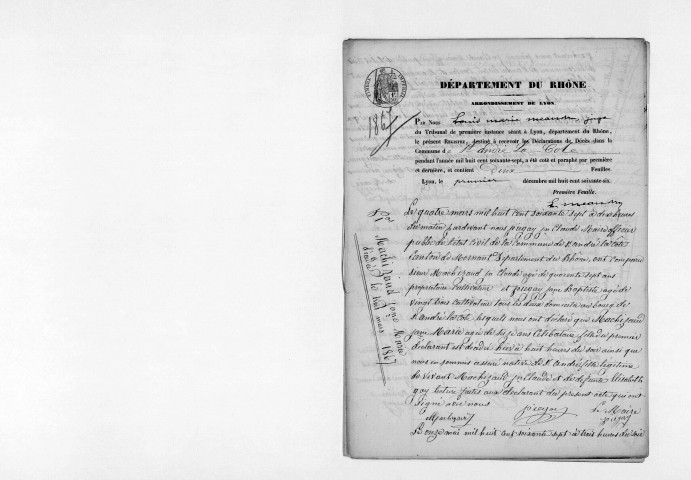 DÉPARTEMENT DU RHÔNE
ARRONDISSEMENT DE LYON.
1867
PAR NOUS Louis marie meaudre, juge
du Tribunal de première instance séant à Lyon, département du Rhône,
le présent REGISTRE, destiné à recevoir les Déclarations de Décès dans la
Commune de St andré La Cote
pendant l'année mil huit cent soixante-sept, a été coté et paraphé par première
et dernière, et contient Deux Feuilles.
Lyon, le premier décembre mil huit cent soixante-six.
Première Feuille.
L. meaudre
Le quatre mars mil huit cent soixante sept à dix heures
du matin pardevant nous jn Claude Maire officier
public de l'état civil de la Commune de St andré la Cote
Canton de Mornant Département du Rhône, ont comparu
sieur Machizaud jn Claude agé de quarente sept ans
propriétaire cultivateur et jn Baptiste agé de
vingt trois cultivateur tous les deux domiciliés au bourg de
St andré la Cote, lesquels nous ont déclaré que Machizaud
Marie agée de ans Célibataire, fille du premier
déclarant est décédée hier à huit heures du soir ainsi que
nous en sommes assuré native de St andré fille légitime
de vivant Machizaud jn Claude et de défunte Elisabeth
gay lecture faites aux déclarant du présent acte qui ont
signé avec nous
Le Maire
Le onze mai mil huit cent soixante sept à trois heures du soir